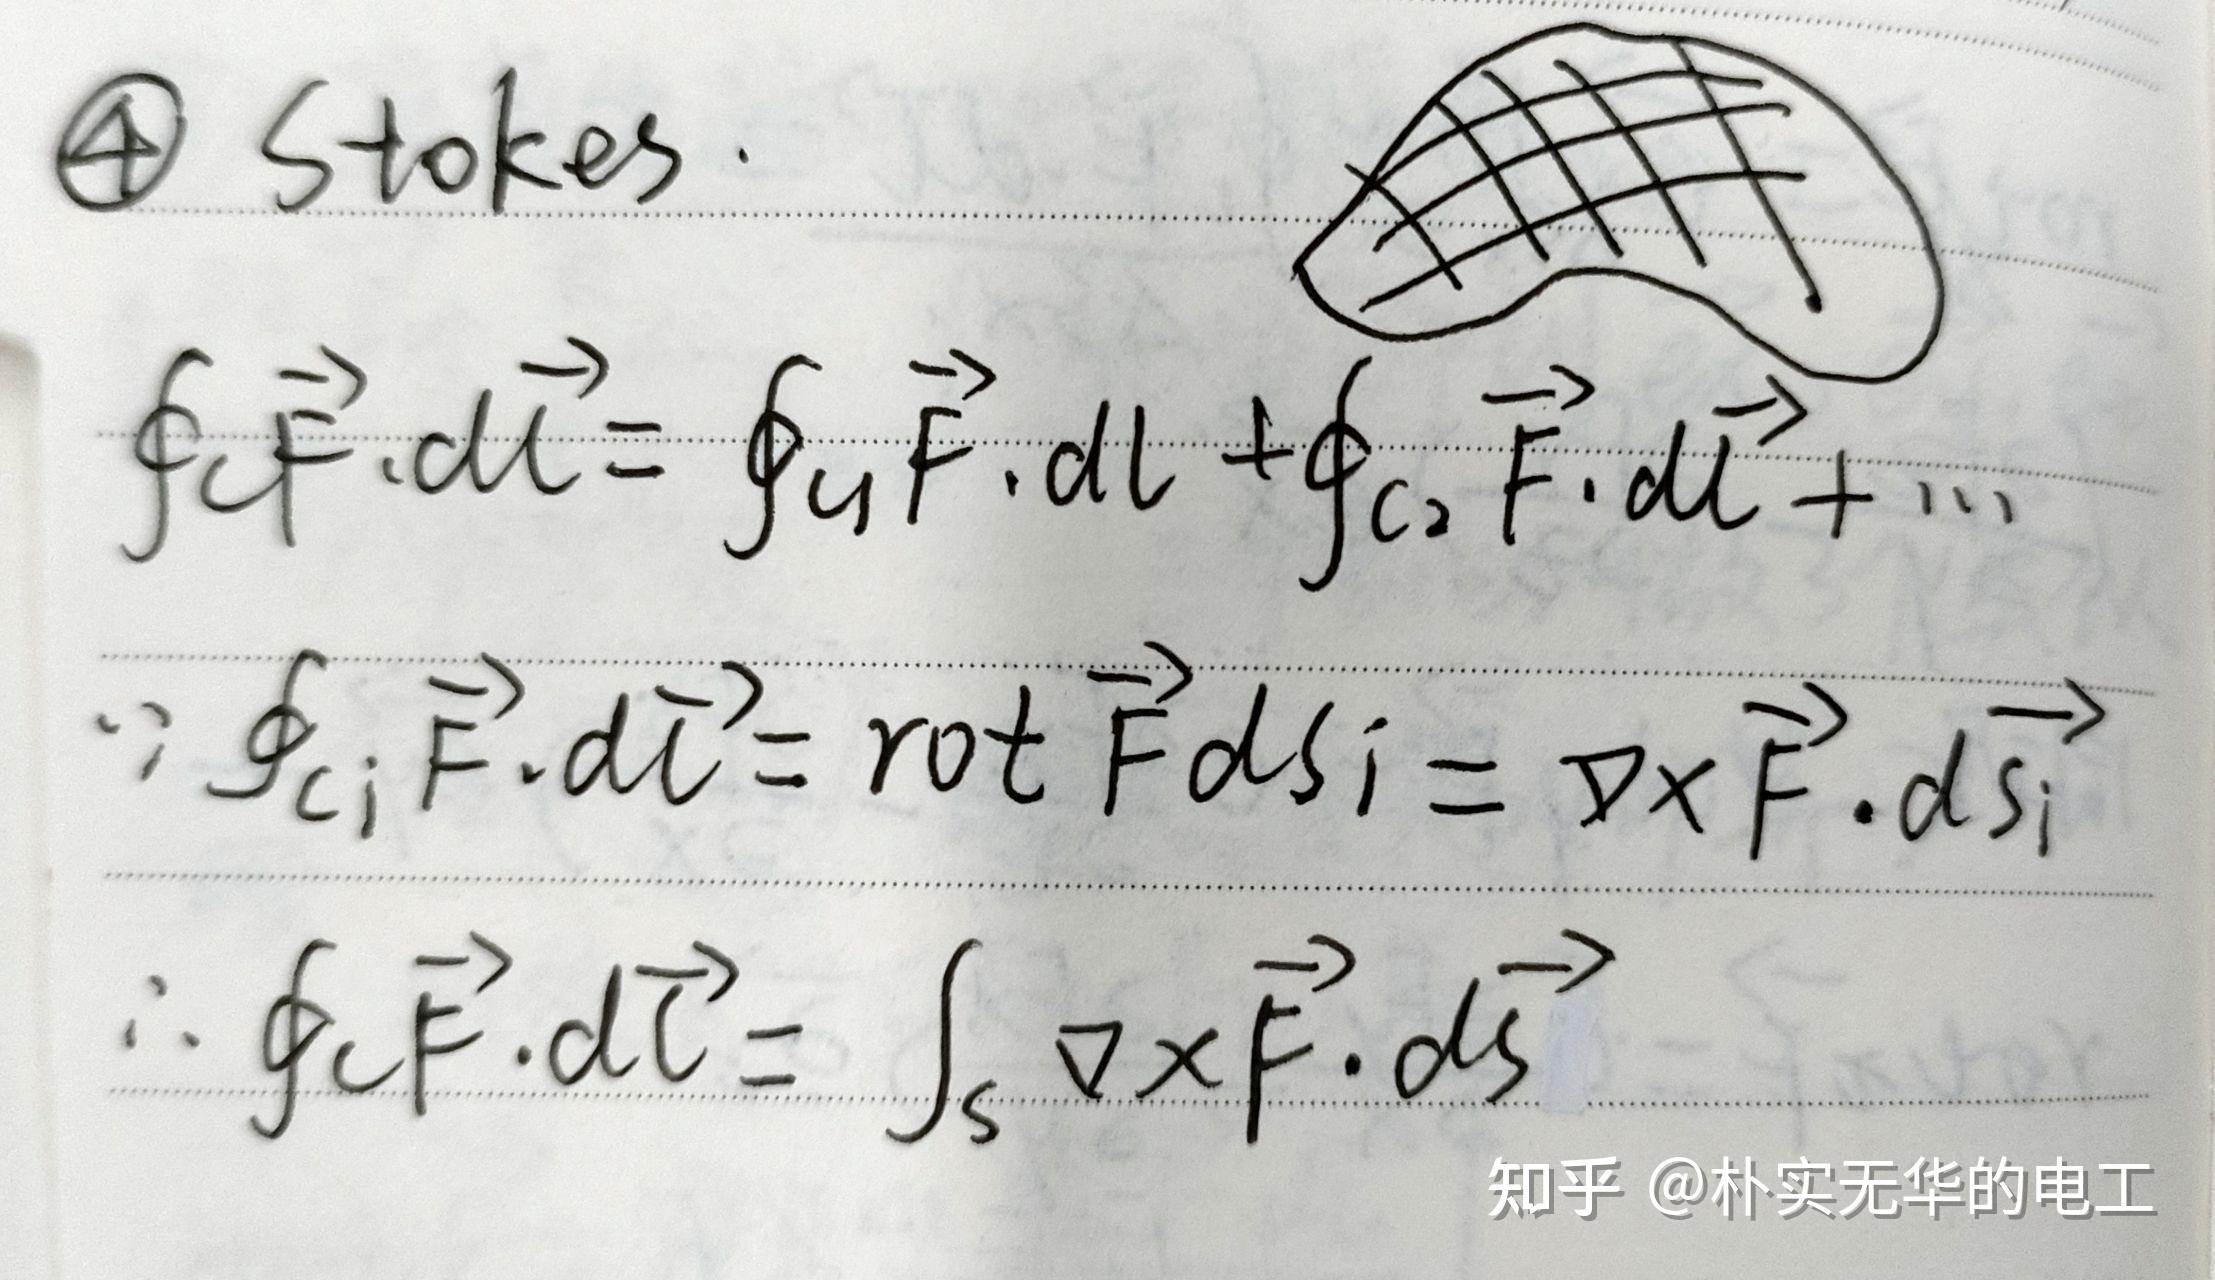 ④ Stokes.
∮c F⃗·dl⃗ = ∮c₁ F⃗·dl + ∮c₂ F⃗·dl⃗ + ···
∵ ∮cᵢ F⃗·dl⃗ = rot F⃗ dsi = ∇×F⃗·ds⃗ᵢ
∴ ∮c F⃗·dl⃗ = ∫s ∇×F⃗·ds⃗
知乎 @朴实无华的电工